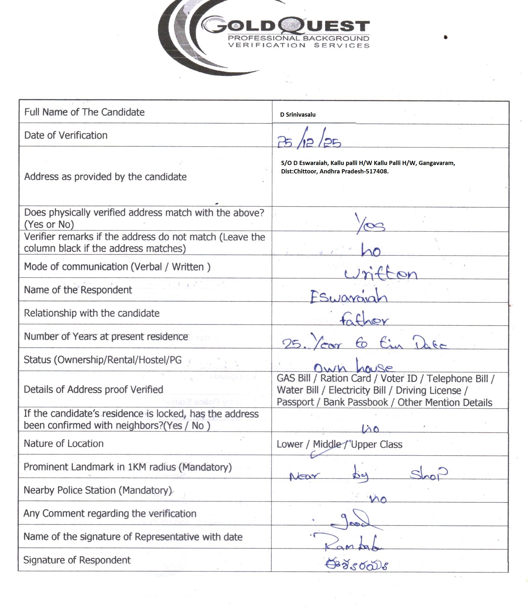 GOLDQUEST
PROFESSIONAL BACKGROUND
VERIFICATION SERVICES
Full Name of The Candidate D Srinivasalu
Date of Verification 25/12/25
Address as provided by the candidate S/O D Eswaraiah, Kallu palli H/W Kallu Palli H/W, Gangavaram,
Dist:Chittoor, Andhra Pradesh-517408.
Does physically verified address match with the above?
(Yes or No) Yes
Verifier remarks if the address do not match (Leave the
column black if the address matches) no
Mode of communication (Verbal / Written ) writton
Name of the Respondent Eswaraiah
Relationship with the candidate father
Number of Years at present residence 25. Year to Date
Status (Ownership/Rental/Hostel/PG own house
Details of Address proof Verified GAS Bill / Ration Card / Voter ID / Telephone Bill /
Water Bill / Electricity Bill / Driving License /
Passport / Bank Passbook / Other Mention Details
If the candidate's residence is locked, has the address
been confirmed with neighbors?(Yes / No ) no
Nature of Location Lower / Middle / Upper Class
Prominent Landmark in 1KM radius (Mandatory) Near by Shop
Nearby Police Station (Mandatory) no
Any Comment regarding the verification good
Name of the signature of Representative with date Rambab
Signature of Respondent